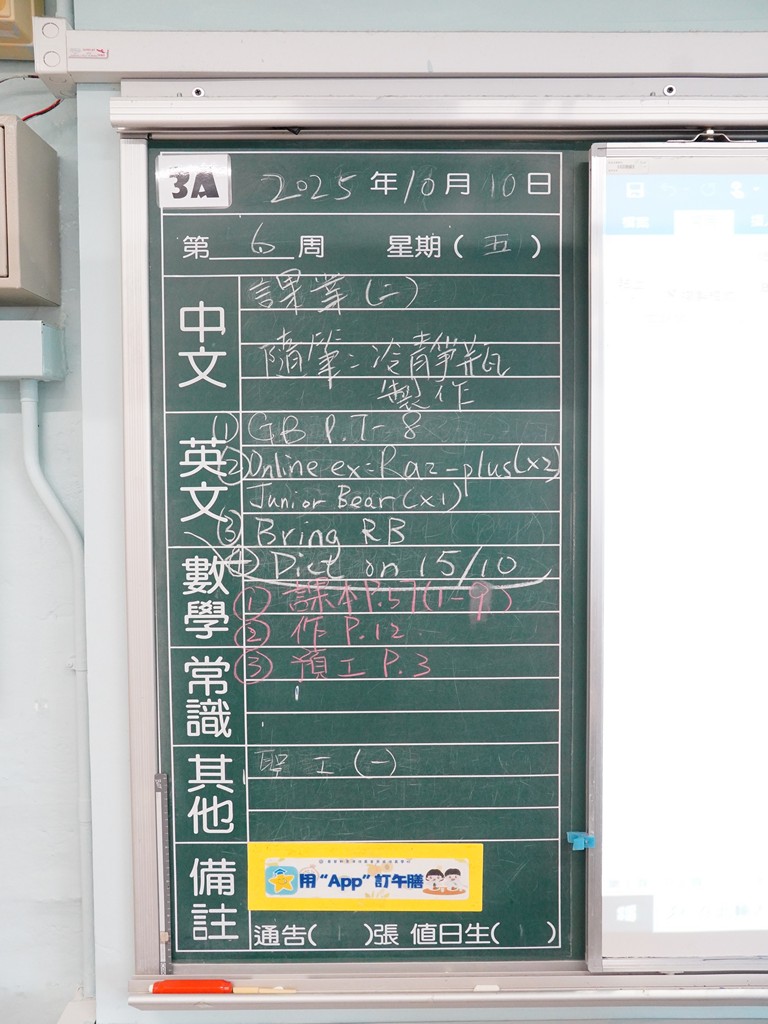 3A
2025年10月10日
第6周 星期(五)
中文
課業(二)
隨筆:冷靜瓶
製作
英文
① GB P.7-8
② Online ex: Raz-plus(x2)
Junior Bear(x1)
③ Bring RB
④ Dict on 15/10
數學
① 課本P.57(1-9)
② 作 P.12
③ 預工 P.3
常識
其他
工(一)
備註
用“App”訂午膳
通告( )張 值日生( )